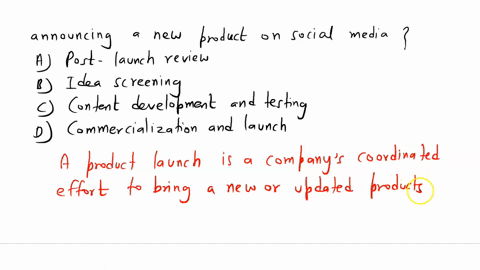 announcing a new product on social media ?
A) Post-launch review
B) Idea screening
C) Content development and testing
D) Commercialization and launch
A product launch is a company's coordinated
effort to bring a new or updated products